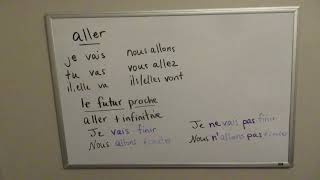 aller
je vais nous allons
tu vas vous allez
il, elle va ils/elles vont
le futur proche
aller + infinitive
Je vais finir
Nous allons
Je ne vais pas finir
Nous n'allons pas